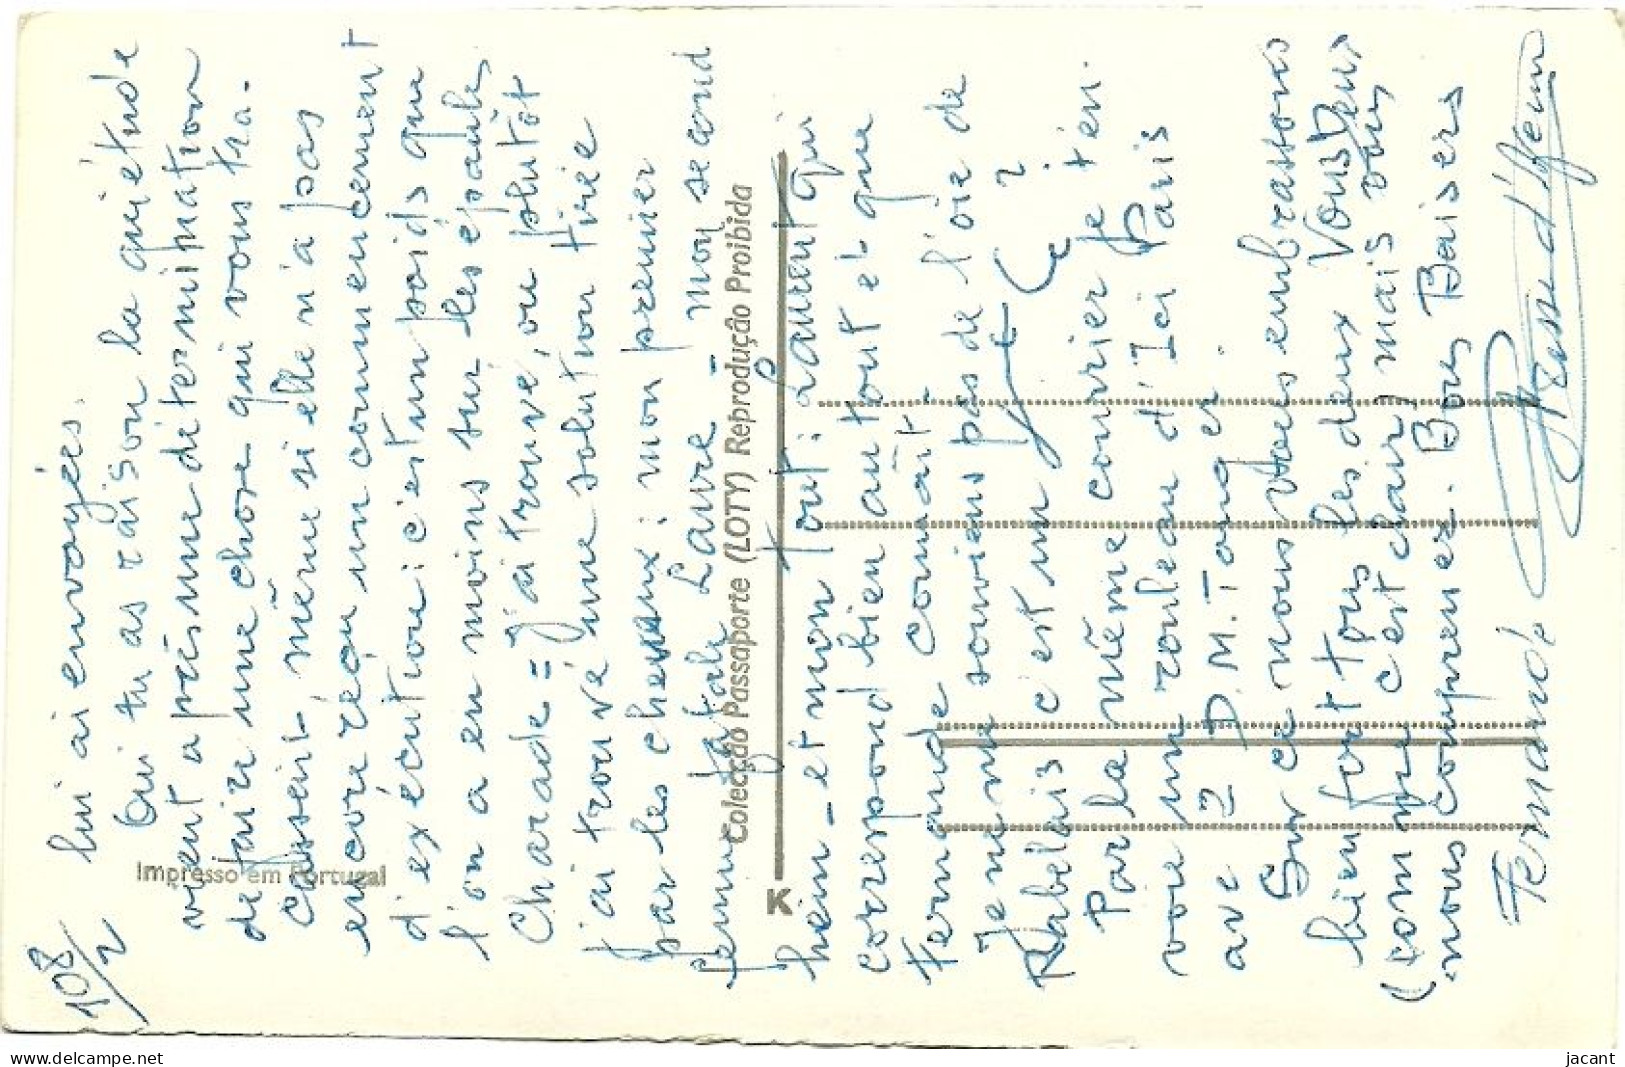 108/2
lui ai envoyés.
Oui tu as raison la quiétude
vient a présume détermination
de faire une chose qui vous tra-
cassent, même si elle n'a pas
encore reçu un commencement
d'exécution : c'est un poids que
l'on a en moins sur les épaules
Charade = j'ai trouvé, ou plutôt
j'ai trouvé une solution tirée
par les cheveux : mon premier
femme fatale Laure - mon second
hein - et mon tout : Laurent qui
correspond bien au tout et que
Fernande connaît -
Je ne me souviens pas de l'oie de
Rabelais c'est un ?
Par la même courrier je t'en-
voie un rouleau d'Ici Paris
avec 2 P.M. Tanger.
Sur ce nous vous embrassons
bien fort tous les deux Vous Deux
(comme c'est clair) mais
nous comprenez. Bons Baisers
Fernande
Impresso em Portugal
Colecção Passaporte (LOTY) Reprodução Proibida
K
www.delcampe.net
jacant